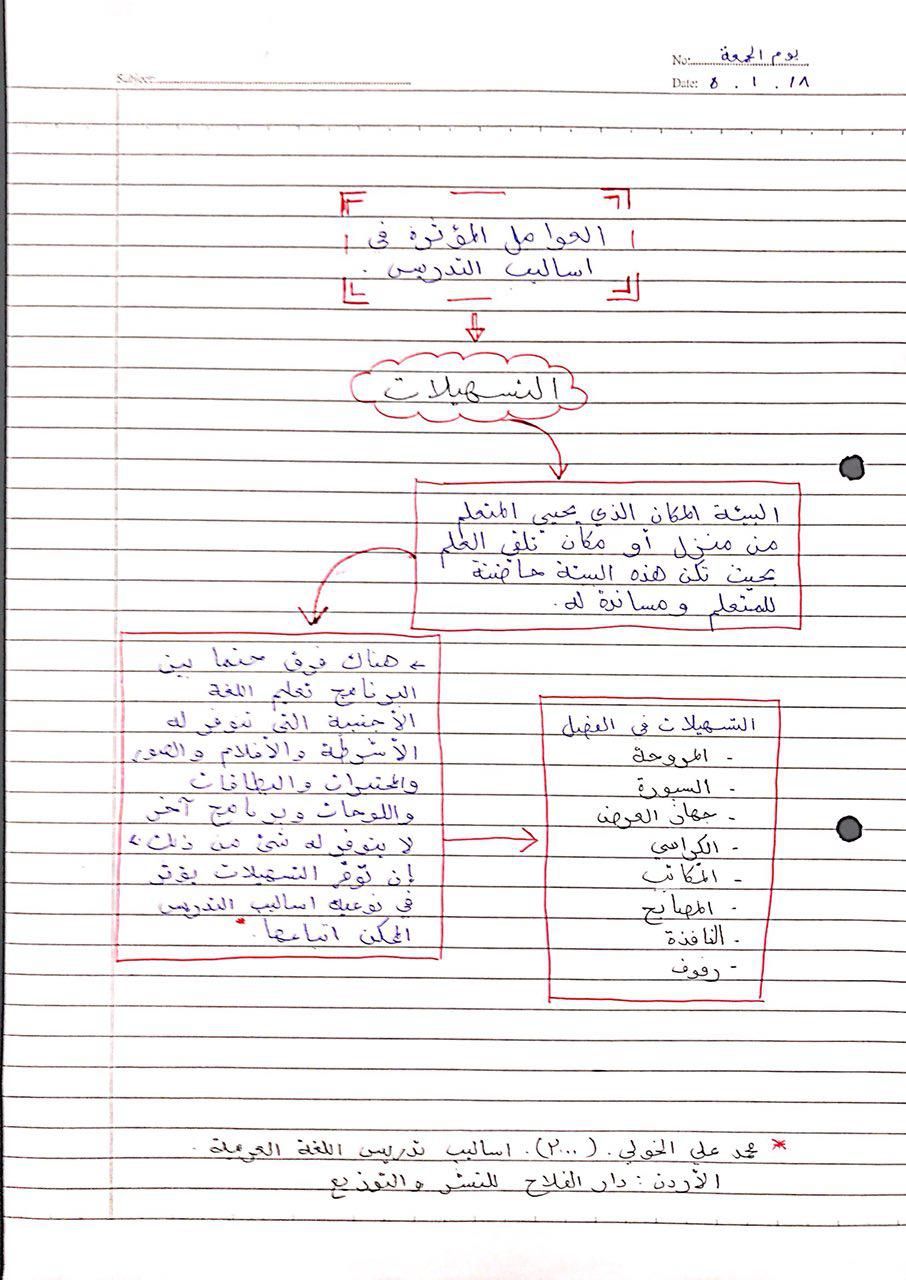 No: يوم الجمعة
Subject:
Date: ٥ . ١ . ١٨
العوامل المؤثرة في
اساليب التدريس .
التسهيلات
البيئة المكان الذي يحيي المتعلم
من منزل أو مكان تلقي العلم
بحيث تكن هذه البيئة حاضنة
للمتعلم ومساندة له .
هناك فرق حتما بين
البرنامج تعليم اللغة
الأجنبية التي تتوفر له
الأشرطة والأفلام والصور
والمختبرات والبطاقات
واللوحات وبرنامج آخر
لا يتوفر له شئ من ذلك،
إن توفر التسهيلات يؤثر
في نوعية اساليب التدريس
الممكن اتباعها .*
التسهيلات في الفصل
- المروحة
- السبورة
- جهاز العرض
- الكراسي
- المكاتب
- المصابيح
- النافذة
- رفوف
* محمد علي الخولي . (٢٠٠٠) . اساليب تدريس اللغة العربية .
الأردن : دار الفلاح للنشر والتوزيع